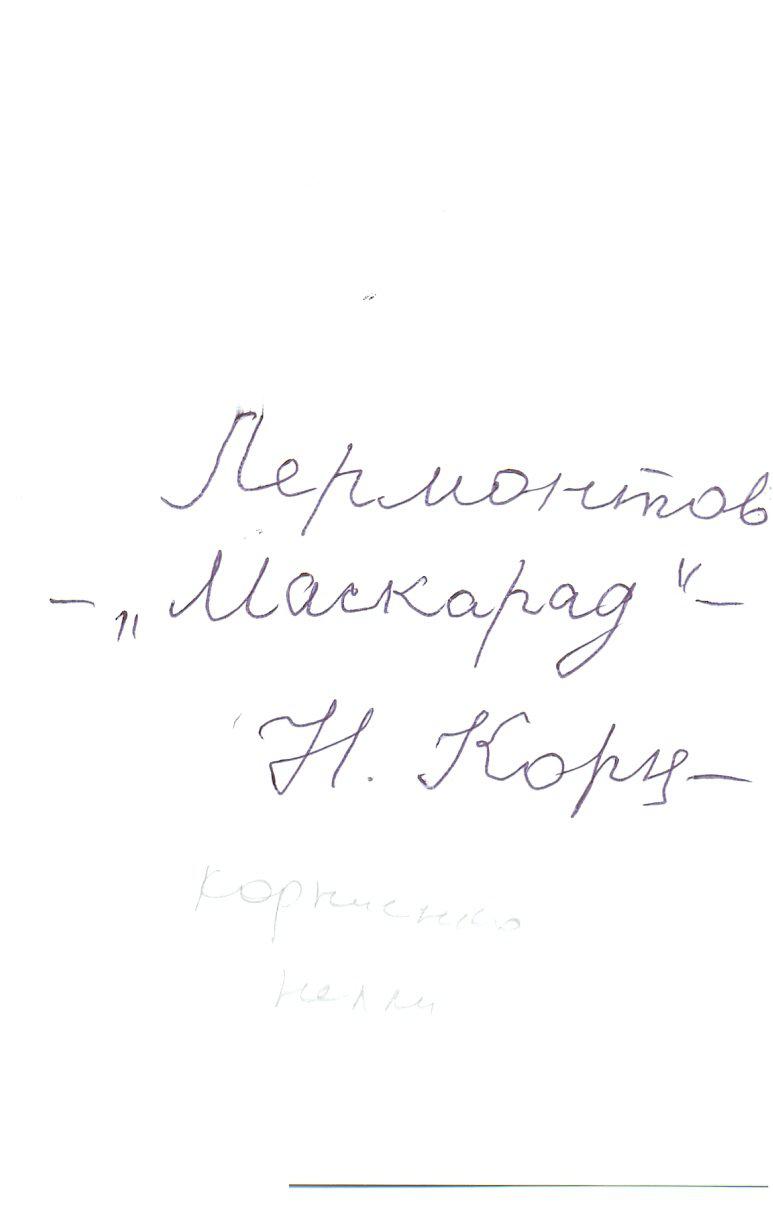 Лермонтов
– „Маскарад“ –
Н. Корц–
Корниенко
Нелли